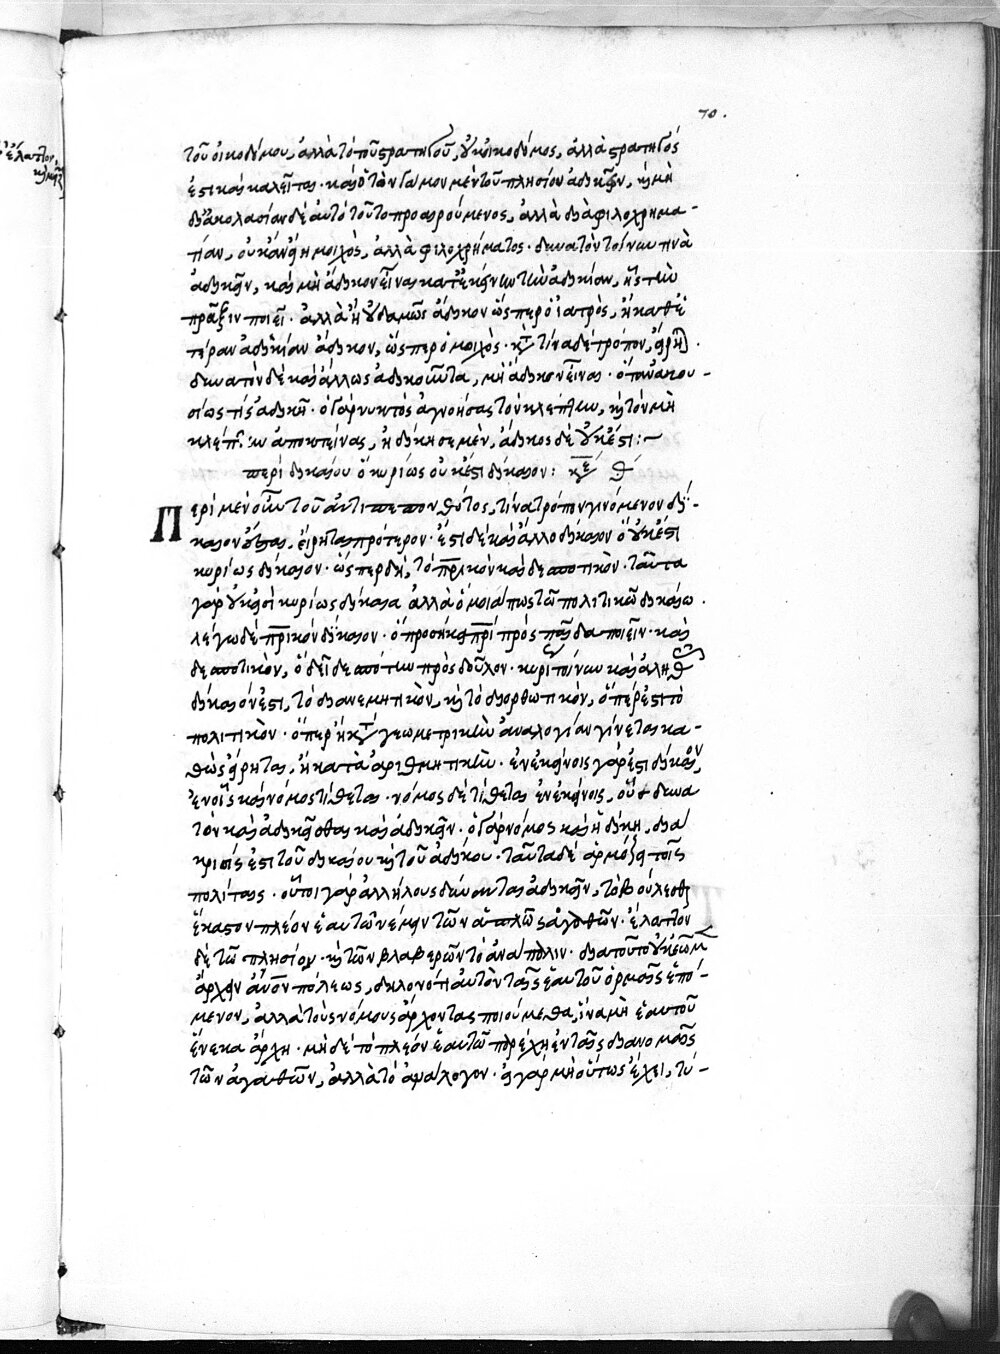 70.
ἐλαττον,
τοῦ οἰκοδόμου, ἀλλὰ τὸ τοῦ στρατηγοῦ, οὐκ οἰκοδόμος, ἀλλὰ στρατηγός
ἐστι καὶ καλεῖται· καὶ ὁ τὸν γάμον μὲν τοῦ πλησίον ἀδικῶν, καὶ μὴ
δι' ἀκολασίαν δὲ αὐτὸ τοῦτο προαιρούμενος, ἀλλὰ διὰ φιλοχρημα-
τίαν, οὐκ ἂν εἴη μοιχὸς, ἀλλὰ φιλοχρήματος· δυνατὸν τοίνυν τινὰ
ἀδικεῖν, καὶ μὴ ἄδικον εἶναι κατ' ἐκείνην τὴν ἀδικίαν, ἧς τὴν
πρᾶξιν ποιεῖ· ἀλλὰ ἢ οὐδαμῶς ἄδικον ὥσπερ ὁ ἰατρὸς, ἢ καθ' ἑ
τέραν ἀδικίαν ἄδικον, ὥσπερ ὁ μοιχὸς· κατὰ τίνα δὲ τρόπον, εἴρηται.
δυνατὸν δὲ καὶ ἄλλως ἀδικοῦντα, μὴ ἄδικον εἶναι· ὅταν ἀκου-
σίως τίς ἀδικῇ· ὁ γὰρ νυκτὸς ἀγνοήσας τὸν κλέπτην, καὶ τὸν μὴ
κλέπτην ἀποκτείνας, ἠδίκησε μὲν, ἄδικος δὲ οὐκ ἔστι:~
περὶ δικαίου ὃ κυρίως οὐκ ἔστι δίκαιον: κε θ
Περὶ μὲν οὖν τοῦ ἀντιπεπονθότος, τίνα τρόπον γινόμενον δί-
καιον ἔσται, εἴρηται πρότερον· ἔστι δὲ καὶ ἄλλο δίκαιον ὃ οὐκ ἔστι
κυρίως δίκαιον· ὥσπερ δὴ, τὸ πρικὸν καὶ δεσποτικὸν· ταῦτα
γὰρ οὐκ εἰσὶ κυρίως δίκαια ἀλλὰ ὅμοιά πως τῷ πολιτικῷ δικαίῳ.
λέγω δὲ πρικὸν δίκαιον· ὃ προσήκει πρὶ πρὸς παῖδα ποιεῖν· καὶ
δεσποτικὸν, ὃ δεῖ δεσπότην πρὸς δοῦλον· κυρίως τοίνυν καὶ ἀληθῶς
δίκαιόν ἐστι, τὸ διανεμητικὸν, καὶ τὸ διορθωτικὸν, ὅπερ ἐστὶ τὸ
πολιτικὸν· ὅπερ ἢ κατὰ γεωμετρικὴν ἀναλογίαν γίνεται κα-
θὼς εἴρηται, ἢ κατὰ ἀριθμητικὴν· ἐν ἐκείνοις γάρ ἐστι δίκαιον,
ἐν οἷς καὶ νόμος τίθεται· νόμος δὲ τίθεται ἐν ἐκείνοις, οὓς δυνα
τὸν καὶ ἀδικεῖσθαι καὶ ἀδικεῖν· ὁ γὰρ νόμος καὶ ἡ δίκη, διά
κρισίς ἐστι τοῦ δικαίου καὶ τοῦ ἀδίκου· ταῦτα δὲ ἁρμόζει τοῖς
πολίταις· οὗτοι γὰρ ἀλλήλους δύνανται ἀδικεῖν, τῷ βούλεσθαι
ἕκαστον πλέον ἑαυτῷ νέμειν τῶν ἁπλῶς ἀγαθῶν· ἔλαττον
δὲ τῷ πλησίον· καὶ τῶν βλαβερῶν τὸ ἀνάπαλιν· διὰ τοῦτο οὐκ ἐῶμεν
ἄρχειν ἄνον πόλεως, δηλονότι αὐτὸν ταῖς ἑαυτοῦ ὁρμαῖς ἑπό-
μενον, ἀλλὰ τοὺς νόμους ἄρχοντας ποιούμεθα, ἵνα μὴ ἑαυτοῦ
ἕνεκα ἄρχῃ· μὴ δὲ τὸ πλεόν ἑαυτῷ παρέχῃ ἐν ταῖς διανομαῖς
τῶν ἀγαθῶν, ἀλλὰ τὸ ἀνάλογον· εἰ γὰρ μὴ οὕτως ἔχει, τύ-